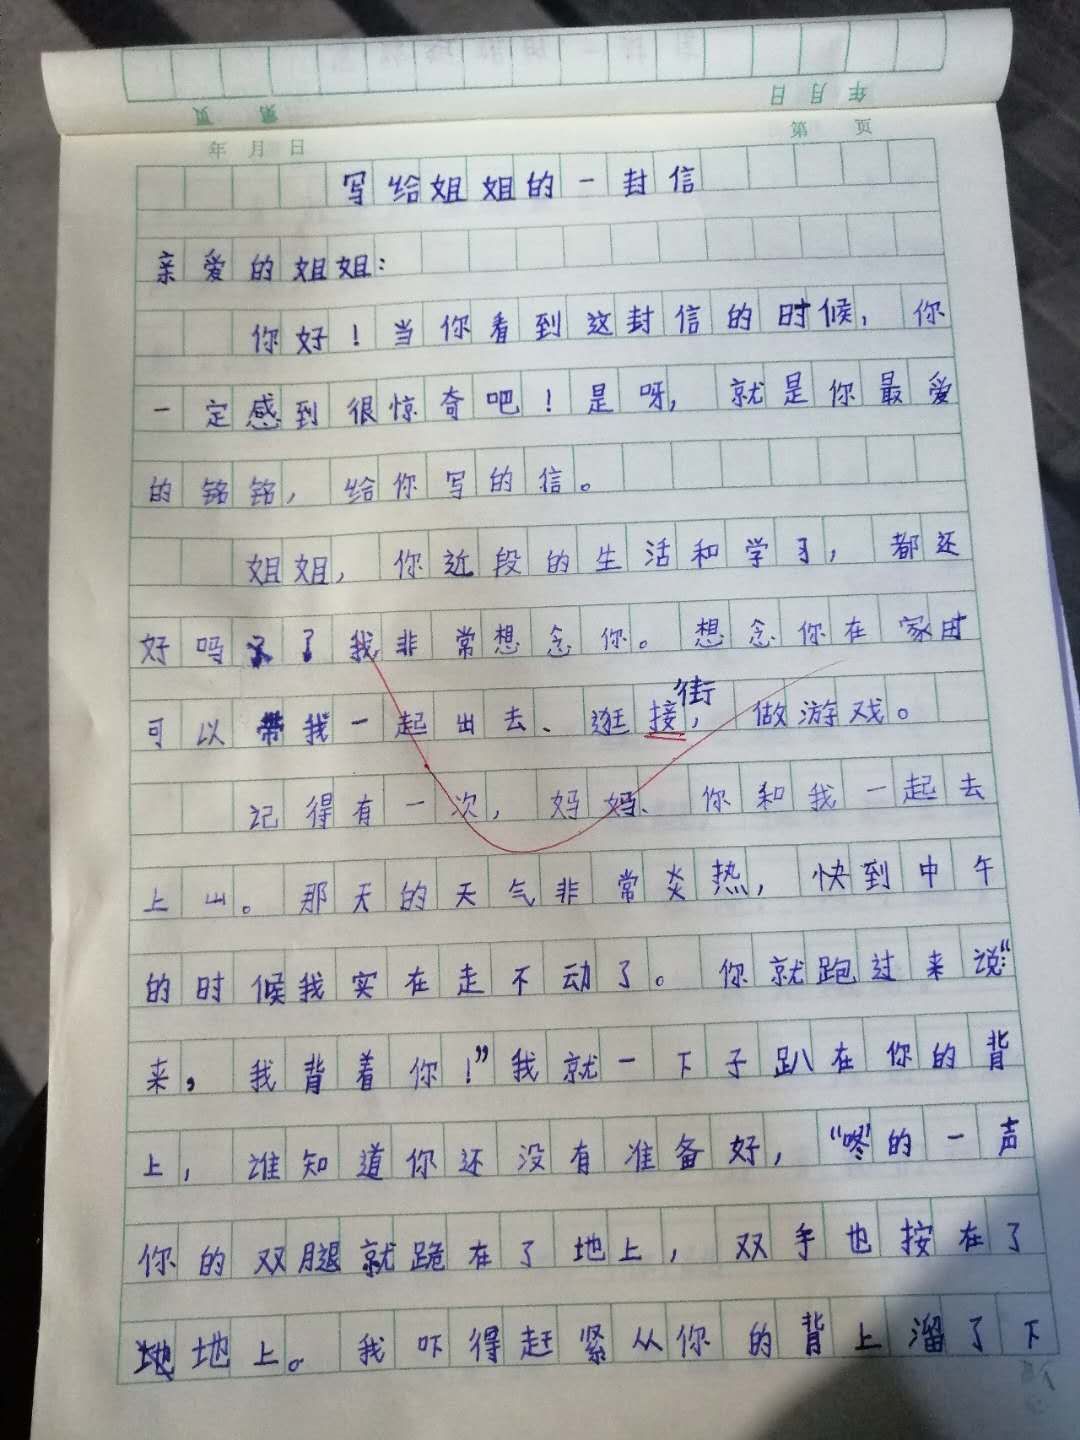 第 页
年 月 日
年 月 日
第 页
写给姐姐的一封信
亲爱的姐姐：
你好！当你看到这封信的时候，你
一定感到很惊奇吧！是呀，就是你最爱
的铭铭，给你写的信。
姐姐，你近段的生活和学习，都还
好吗？我非常想念你。想念你在家时
街
可以带我一起出去、逛接，做游戏。
记得有一次，妈妈、你和我一起去
上山。那天的天气非常炎热，快到中午
的时候我实在走不动了。你就跑过来说“
来，我背着你！”我就一下子趴在你的背
上，谁知道你还没有准备好，“咚”的一声
你的双腿就跪在了地上，双手也按在了
地上。我吓得赶紧从你的背上溜了下